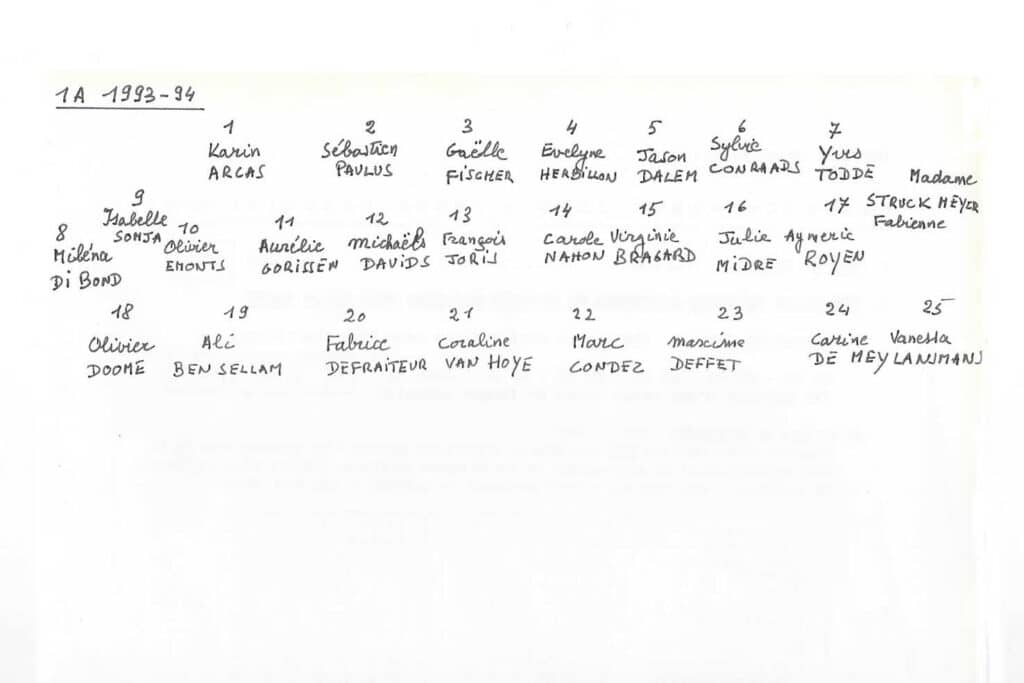 1A 1993-94
1 2 3 4 5 6 7
Karin Sébastien Gaëlle Evelyne Jason Sylvie Yves
ARCAS PAULUS FISCHER HERBILLON DALEM CONRAADS TODDE Madame
STRUCKMEYER
Fabienne
8 9 10 11 12 13 14 15 16 17
Miléna Isabelle Olivier Aurélie Michaël François Carole Virginie Julie Aymeric
Di BOND SONJA EMONTS GORISSEN DAVIDS JORIS NAHON BRAGARD MIDRE ROYEN
18 19 20 21 22 23 24 25
Olivier Ali Fabrice Coraline Marc Maxime Carine Vanessa
DOOME BEN SELLAM DEFRAITEUR VAN HOYE CONDEZ DEFFET DE MEY LANSMANS